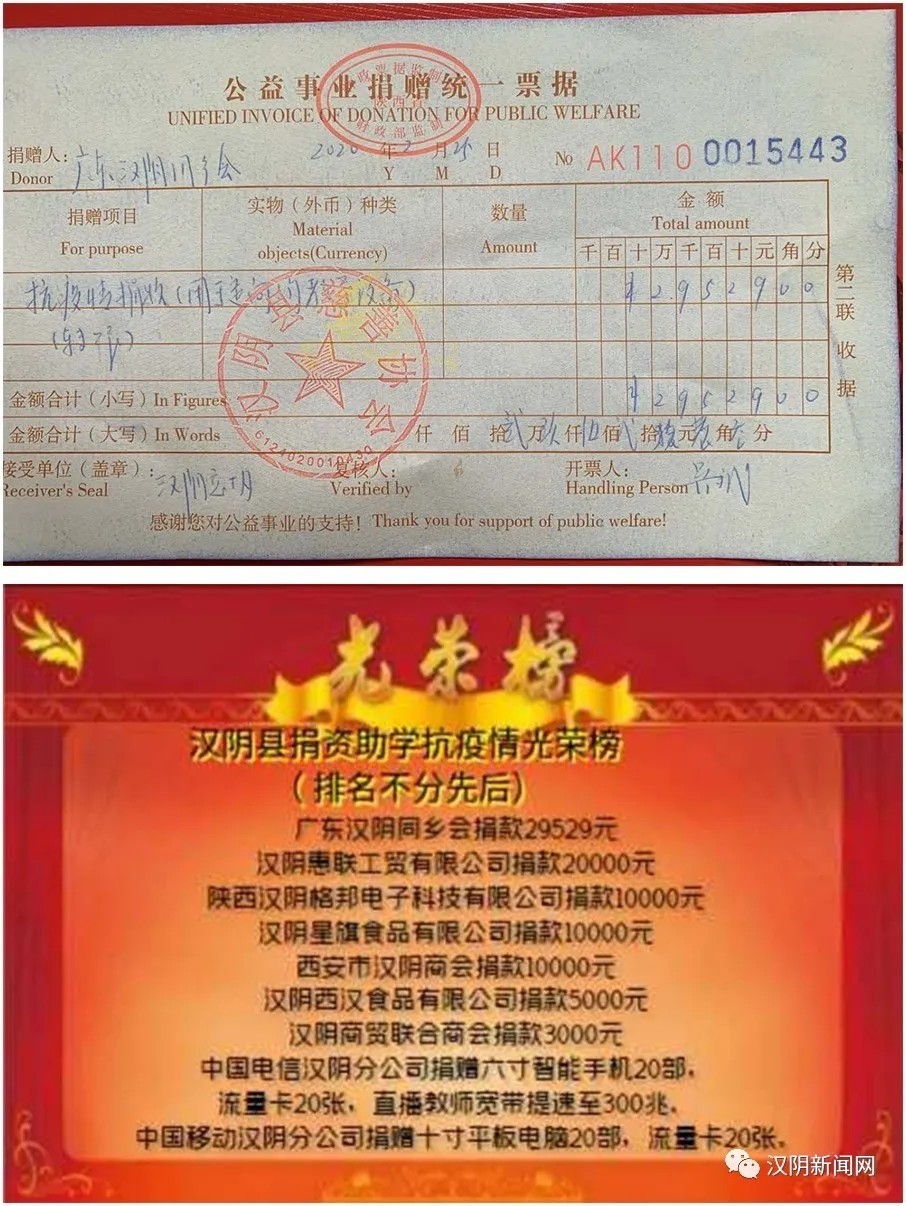 公益事业捐赠统一票据
UNIFIED INVOICE OF DONATION FOR PUBLIC WELFARE
陕西省
财政部监制
捐赠人：广东汉阴同乡会 2020 年 2 月 25 日 No AK110 0015443
Donor Y M D
捐赠项目 实物（外币）种类 数量 金额
For purpose Material objects(Currency) Amount Total amount
千 百 十 万 千 百 十 元 角 分
抗疫情捐款（用于 ¥ 2 9 5 2 9 0 0
金额合计（小写）In Figures ¥ 2 9 5 2 9 0 0
金额合计（大写）In Words 仟 佰 拾 贰 万 玖 仟 伍 佰 贰 拾 玖 元 零 角 零 分
接受单位（盖章）： 复核人： 开票人：
Receiver's Seal Verified by Handling Person
感谢您对公益事业的支持！Thank you for support of public welfare!
第二联 收据
汉阴县慈善协会
6124020010430
光荣榜
汉阴县捐资助学抗疫情光荣榜
（排名不分先后）
广东汉阴同乡会捐款29529元
汉阴惠联工贸有限公司捐款20000元
陕西汉阴格邦电子科技有限公司捐款10000元
汉阴星旗食品有限公司捐款10000元
西安市汉阴商会捐款10000元
汉阴西汉食品有限公司捐款5000元
汉阴商贸联合商会捐款3000元
中国电信汉阴分公司捐赠六寸智能手机20部，
流量卡20张，直播教师宽带提速至300兆。
中国移动汉阴分公司捐赠十寸平板电脑20部，流量卡20张。
汉阴新闻网